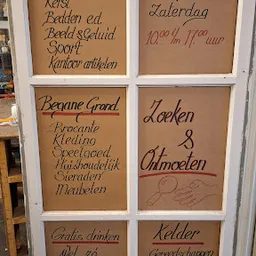 Kerst
Bedden e.d.
Beeld & Geluid
Sport
Kantoor artikelen
Zaterdag
10.00 t/m 17.00 uur
Begane Grond
Brocante
Kleding
Speelgoed
Huishoudelijk
Sieraden
Meubelen
Zoeken
&
Ontmoeten
Gratis drinken
Kelder
Gereedschappen